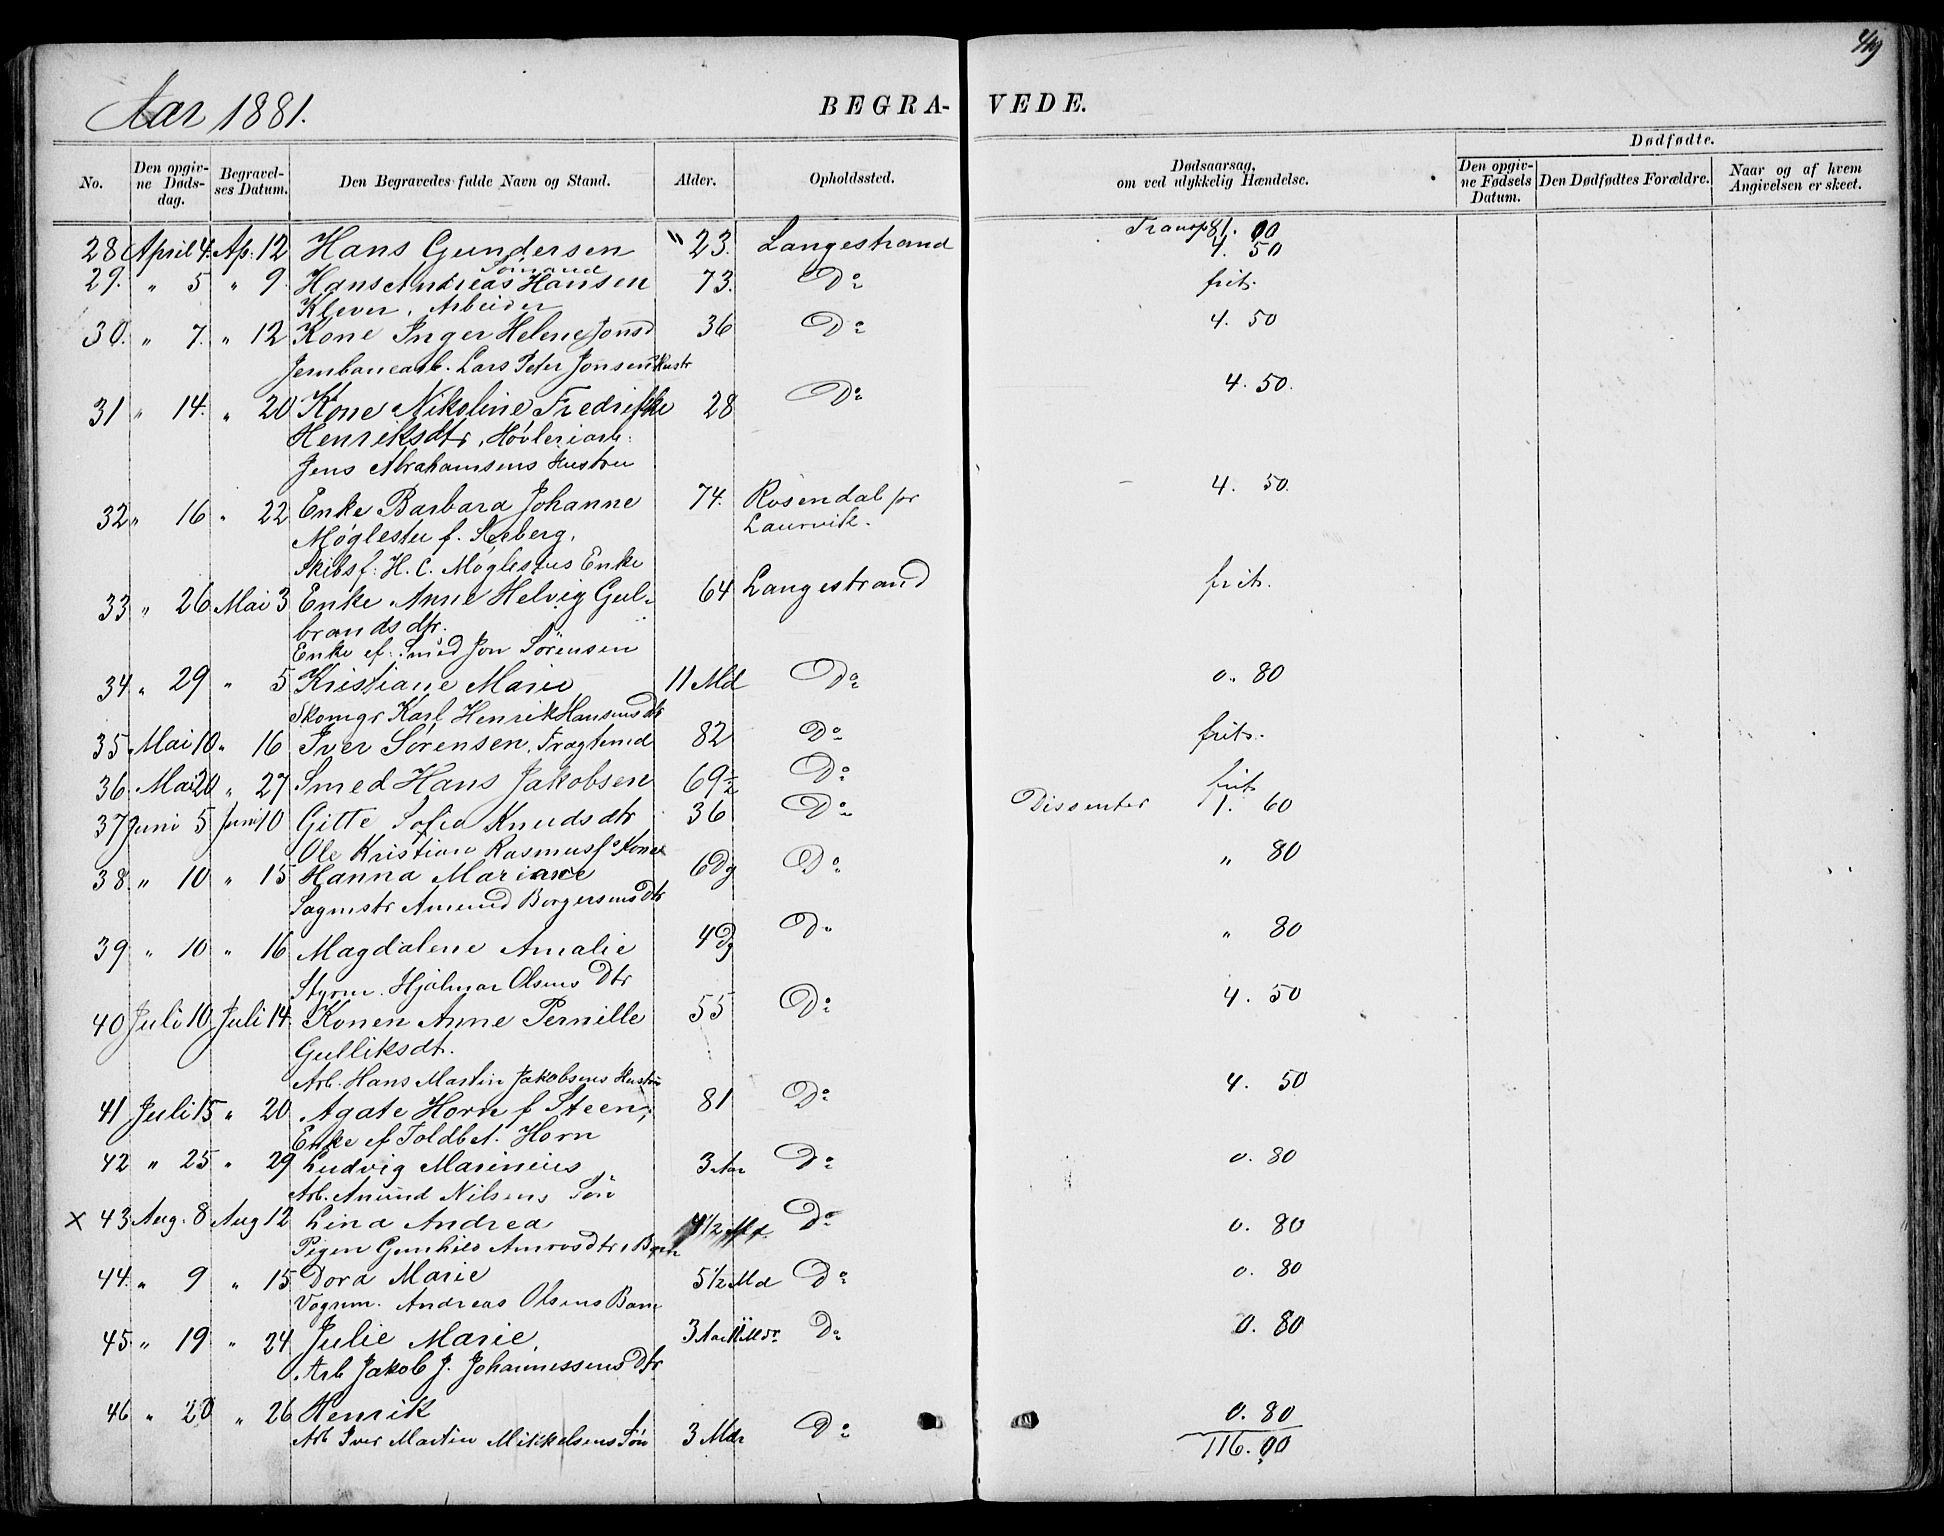 49
Aar 1881.
BEGRAVEDE.
No. | Den opgivne Dødsdag. | Begravelses Datum. | Den Begravedes fulde Navn og Stand. | Alder. | Opholdssted. | Dødsaarsag, om ved ulykkelig Hændelse. | Dødfødte. Den opgivne Fødsels Datum. | Den Dødfødtes Forældre. | Naar og af hvem Angivelsen er skeet.
Transp 81. 00
28 April 4. Ap. 12 Hans Gundersen " 23. Langestrand 4. 50
Sømand
29. " 5 " 9. Hans Andreas Hansen 73. Do frit.
Klever, Arbeider
30. " 7. " 12 Kone Inger Helene Jonsd 36 Do 4. 50
Jernbanearb. Lars Peter Jonsens Hustr
31 " 14. " 20 Kone Nikoline Fredrikke 28 Do 4. 50.
Henriksdtr, Høvleriarb:
Jens Abrahamsens Hustru
32 " 16 " 22 Enke Barbara Johanne 74. Rosendal pr 4. 50.
Møglestu f. Seeberg, Laurvik.
Skibsf: H. C. Møglestues Enke
33 " 26 Mai 3 Enke Anne Helvig Gul- 64 Langestrand frit.
brandsdtr.
Enke ef. Smed Jon Sørensen
34 " 29 " 5 Kristiane Marie 11 Md Do 0. 80
Skomgr Karl Henrik Hansens Dtr
35 Mai 10 " 16 Iver Sørensen, Fragtemd 82 Do frit.
36. Mai 20 " 27 Smed Hans Jakobsen 69½ Do frit
37 Juni 5 Juni 10 Gitte Sofie Knudsdtr 36 Do Dissenter 1. 60
Ole Kristian Rasmuss. Kone
38. " 10 " 15 Hanna Mariane 6 Dg Do " 80
Sagmstr Amund Borgersens Dtr
39 " 10 " 16 Magdalene Amalie 4 Dg Do " 80
Styrm. Hjalmar Olsens Dtr
40 Juli 10 Juli 14 Konen Anne Pernille 55 Do 4. 50
Gulliksdt.
Arb. Hans Martin Jakobsens Hustru
41 Juli 15 " 20 Agate Horn f Steen, 81 Do 4. 50
Enke ef Toldbet. Horn
42 " 25 " 29 Ludvig Marinius 3 Aar Do 0. 80
Arb. Anund Nilsens Søn
x 43 Aug. 8 Aug 12 Lina Andrea 4 1/2 Md. Do 0. 80
Pigen Gunhild Amundsdtrs Barn
44. " 9 " 15 Dora Marie 5 1/2 Md Do 0. 80
Vognm. Andreas Olsens Barn
45. " 19 " 24 Julie Marie, 3 Aar 11 Mdr Do 0. 80
Arb Jakob J. Johannessens Dtr
46 " 20 " 26 Henrik 0. 80
Arb Iver Martin Mikkelsens Søn 3 Mdr Do 116. 00